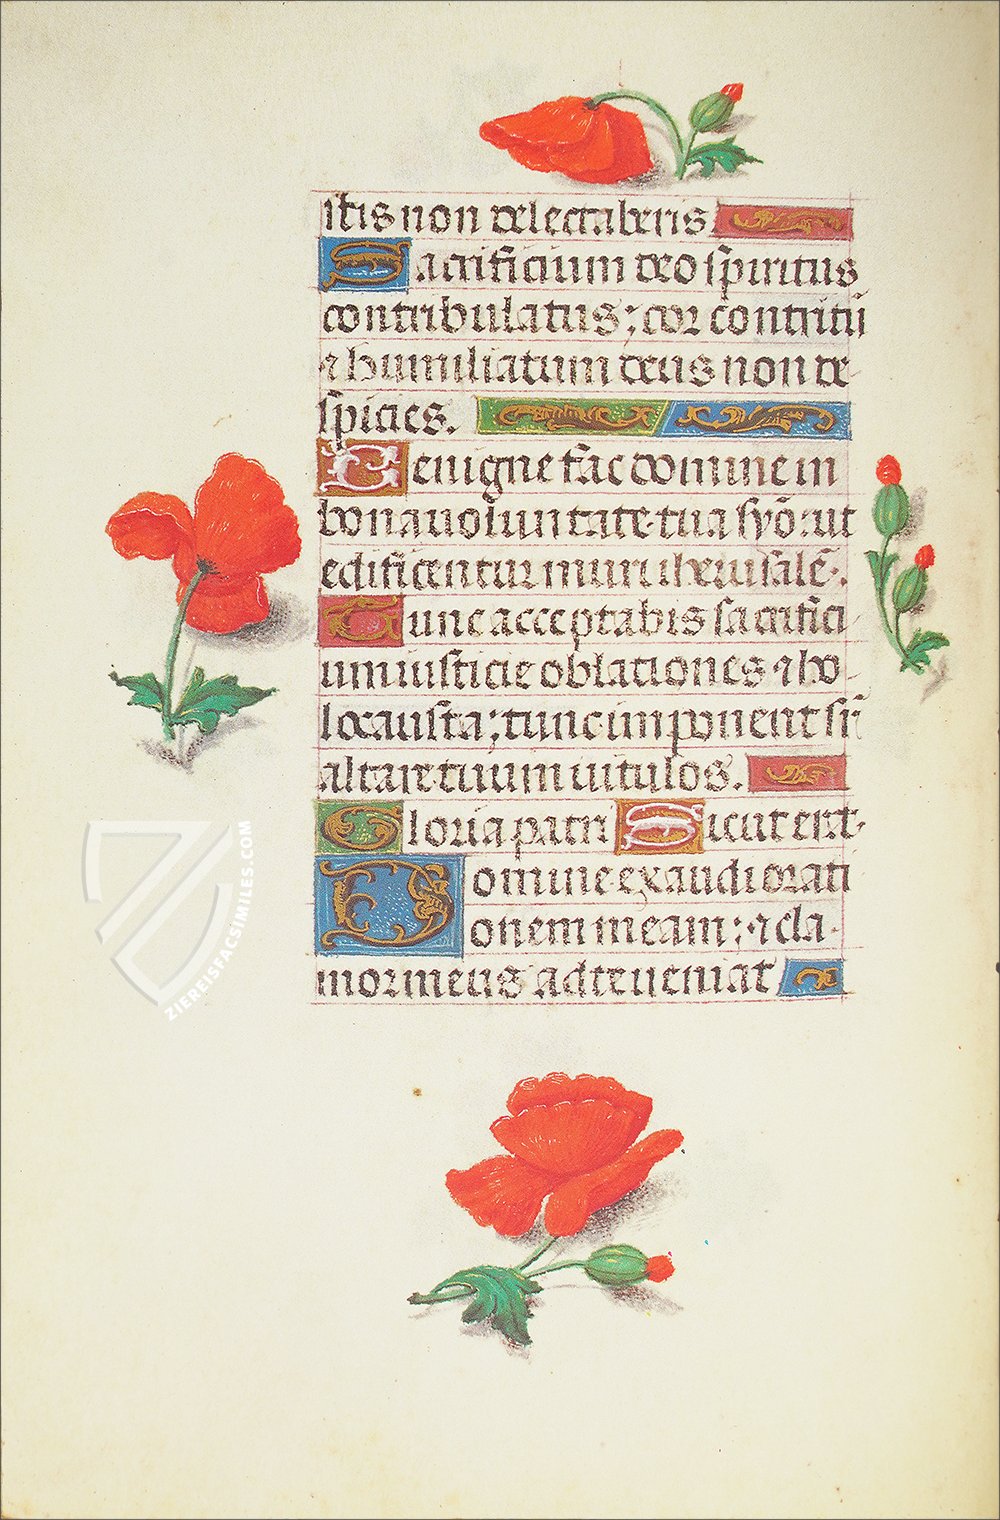 stis non delectaberis.
Sacrificium deo spiritus
contribulatus: cor contritū
⁊ humiliatum deus non de-
spicies.
Benigne fac domine in
bona voluntate tua syō: ut
edificentur muri iherusalē.
Tunc acceptabis sacrifici-
um iusticie oblationes ⁊ ho-
locausta: tunc imponent sr̄
altare tuum vitulos.
Gloria patri Sicut erat.
Domine exaudi orati
onem meam: ⁊ cla-
mor meus ad te veniat
ZIEREISFACSIMILES.COM